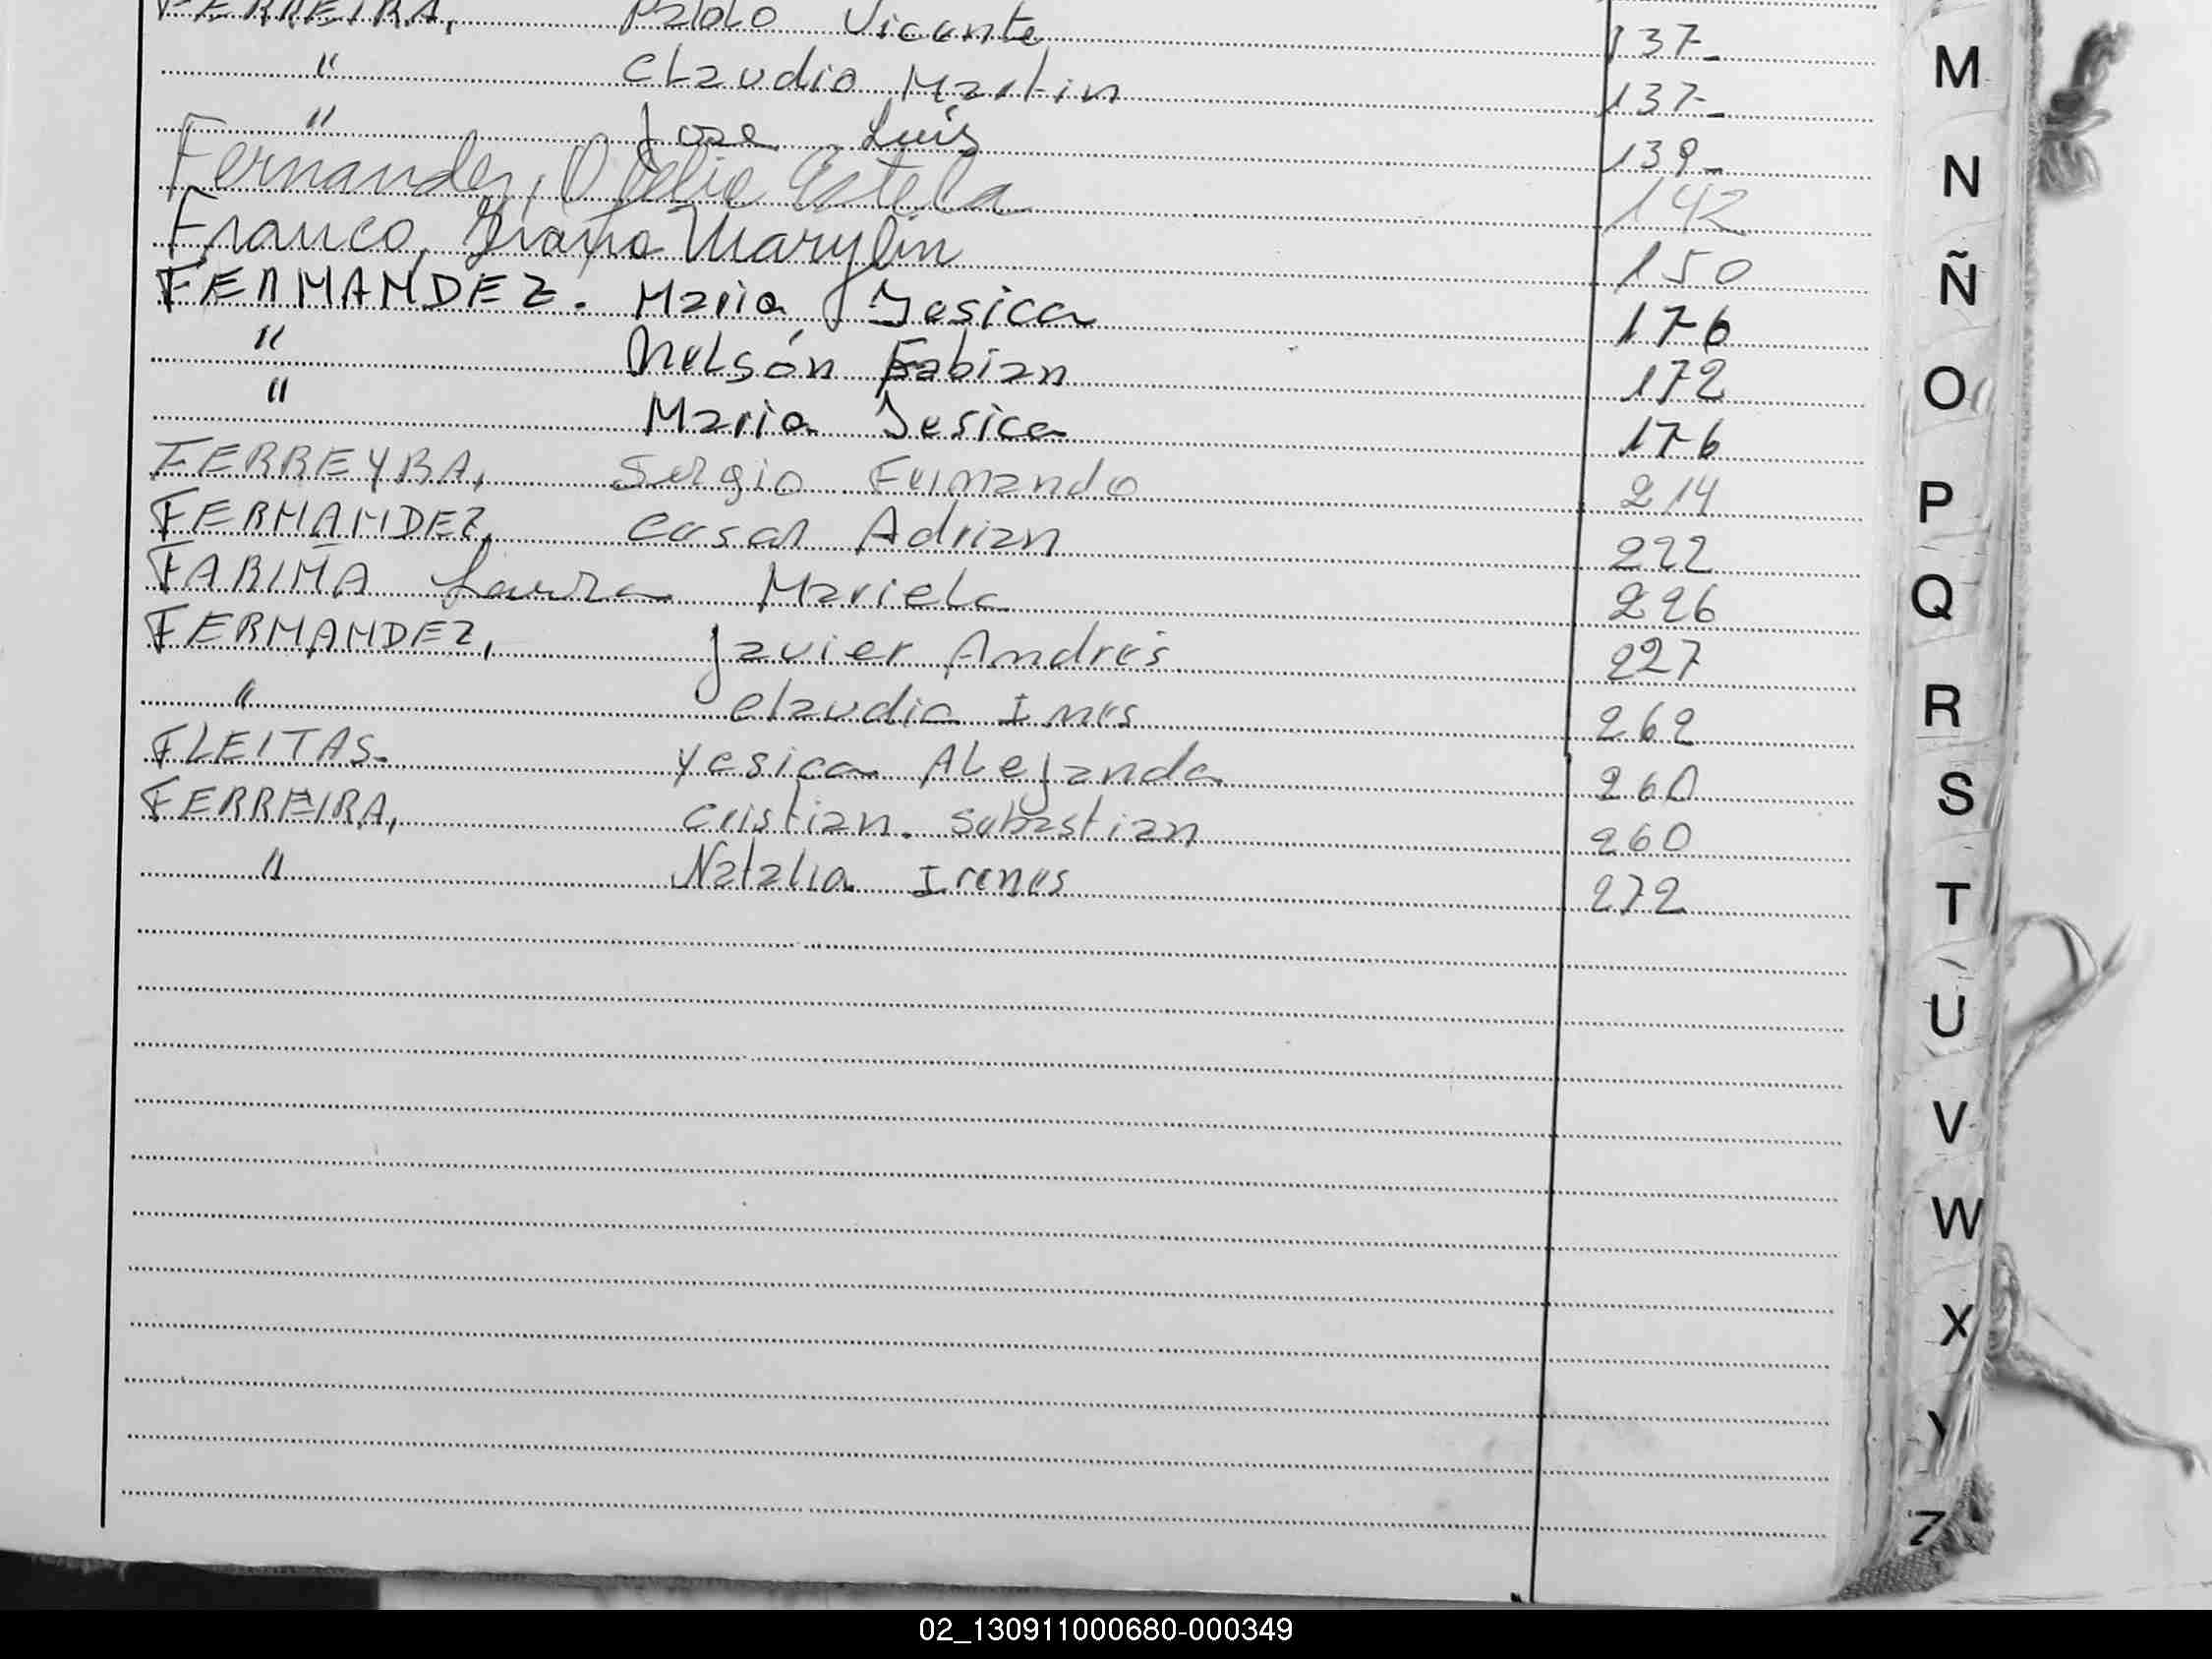 FERREIRA, Pablo Vicente 137-
" Claudio Martin 137-
" Jose Luis 139-
Fernandez, Ofelia Estela 142
Franco, Marylin 150
FERNANDEZ. Maria Jesica 176
" Nelsón Fabian 172
" Maria Jesica 176
FERREYRA, Sergio Fernando 214
FERNANDEZ, Cesar Adrian 222
FARIÑA Laura Mariela 226
FERNANDEZ, Javier Andrés 227
" Claudia Ines 262
FLEITAS. Yesica Alejanda 260
FERREIRA, Cristian. Sebastian 260
" Natalia Irenes 272
M
N
Ñ
O
P
Q
R
S
T
U
V
W
X
Y
Z
02_130911000680-000349